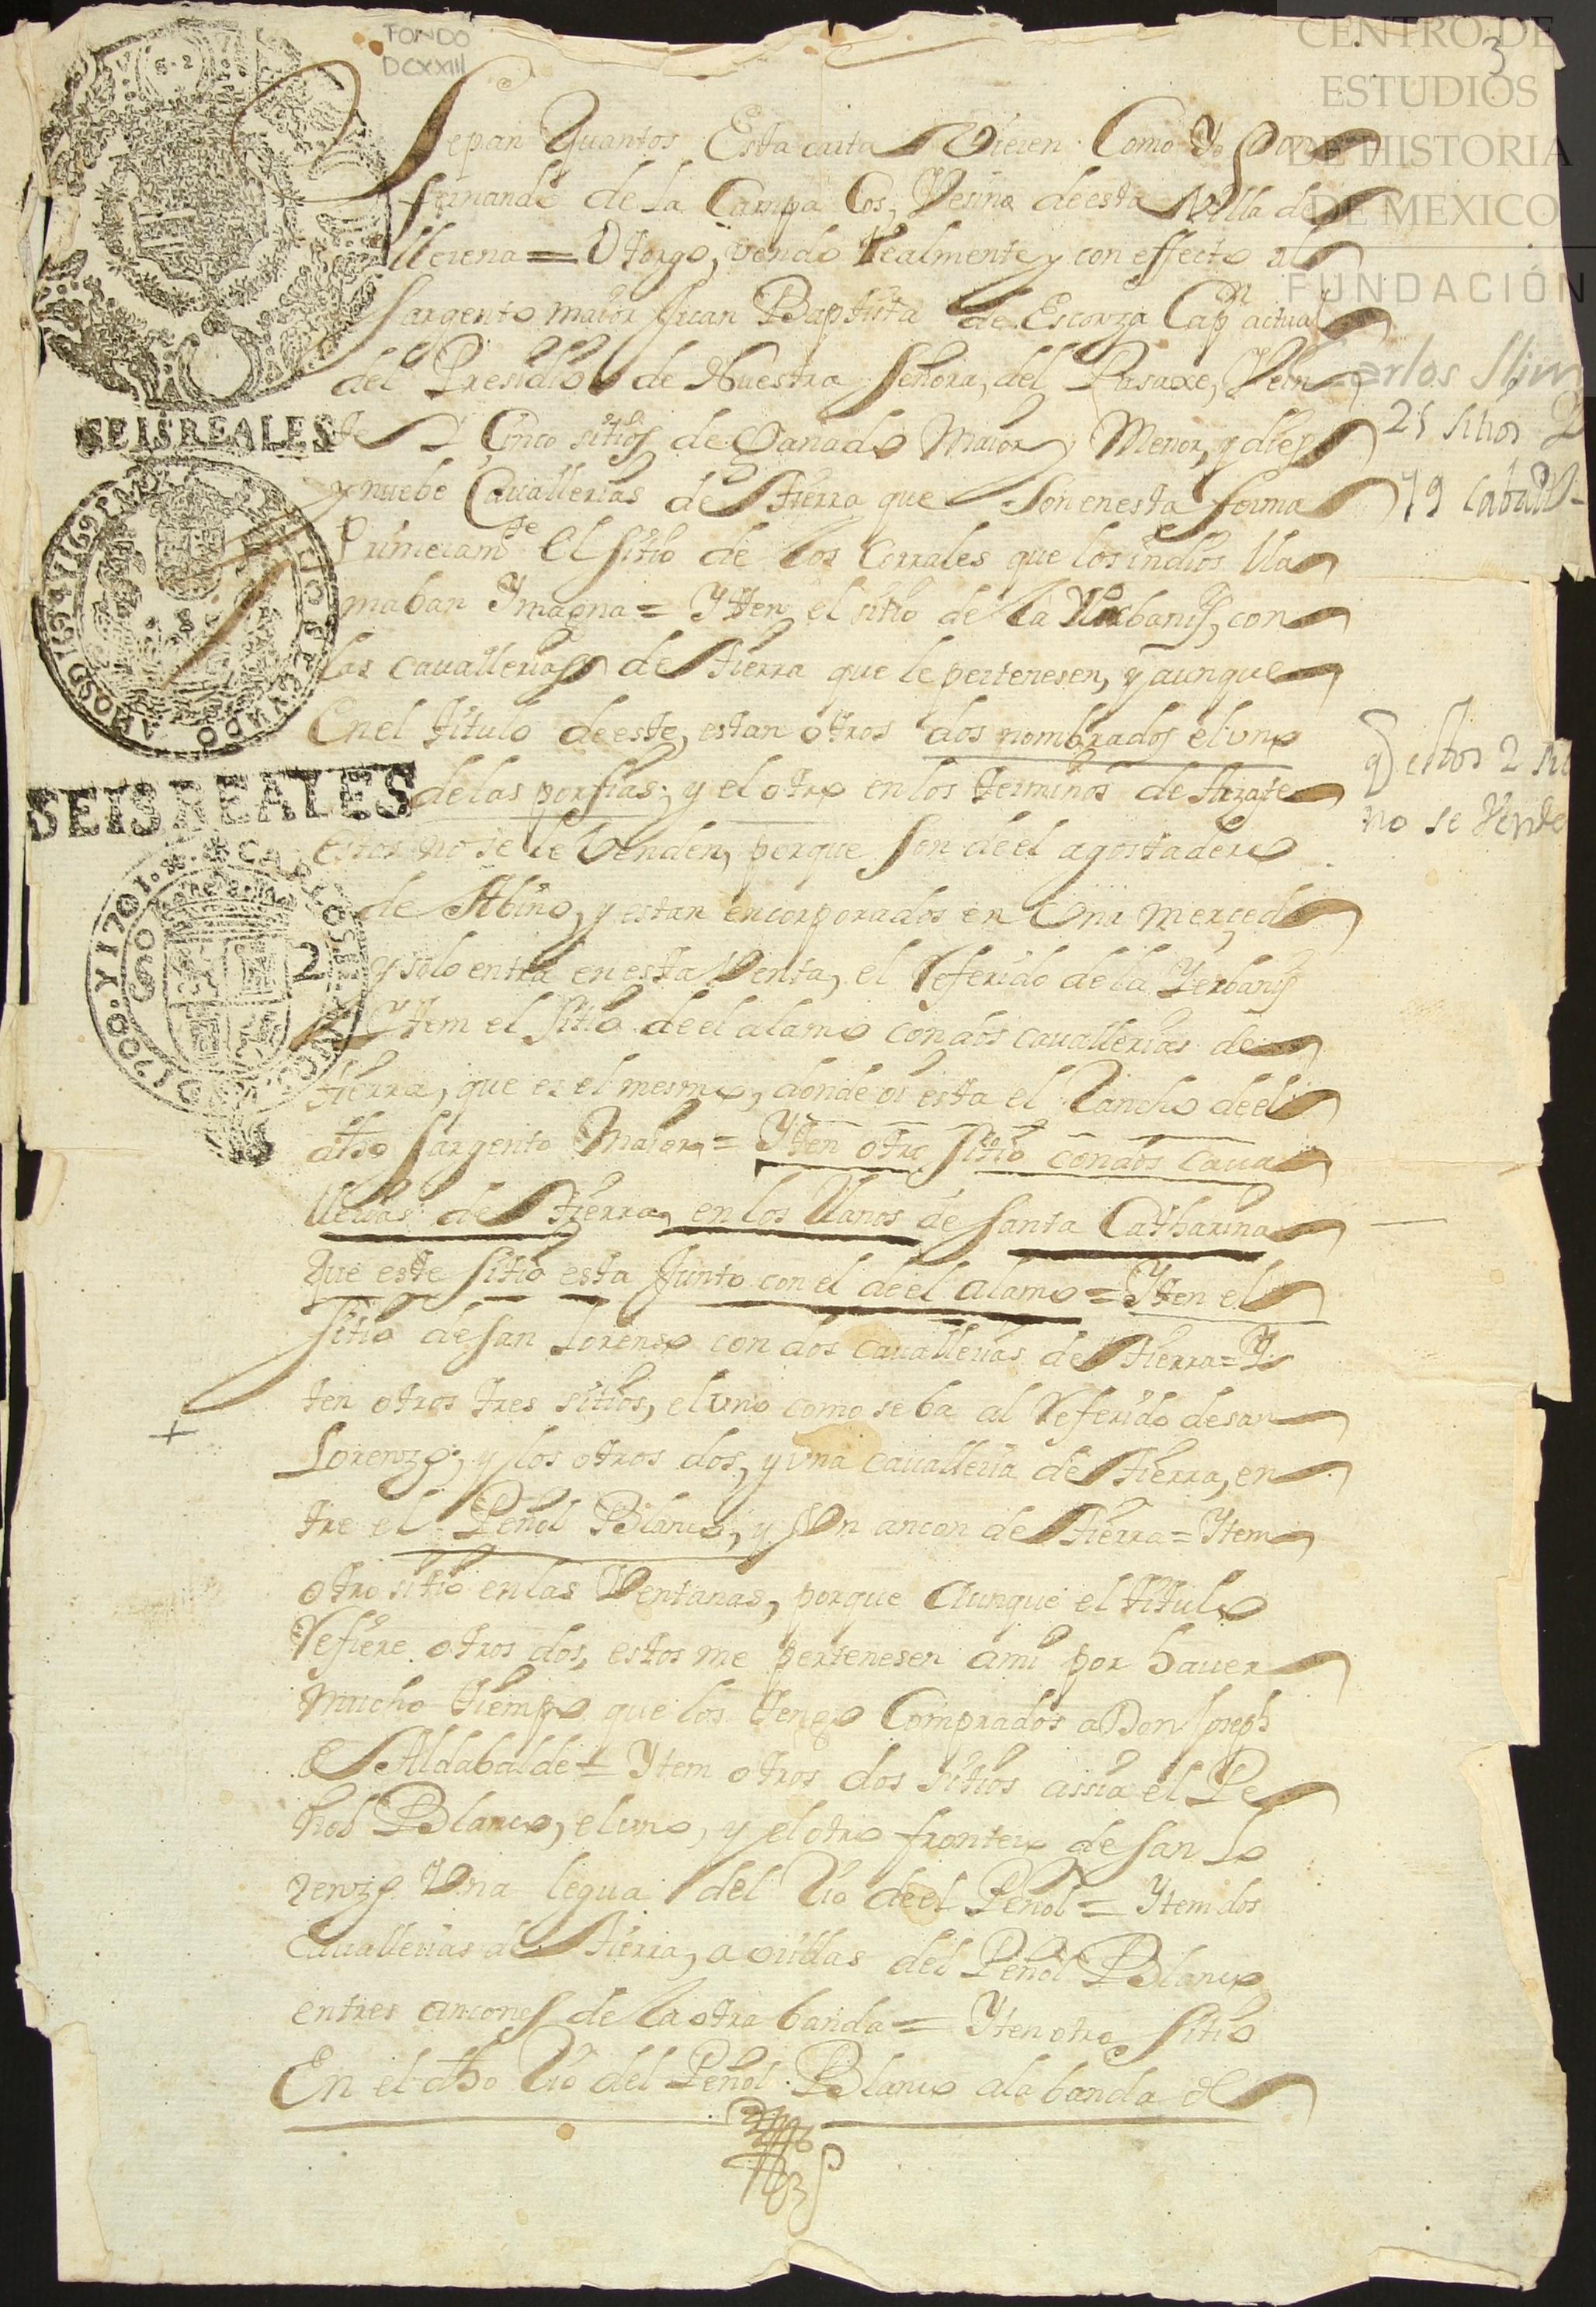 FONDO
DCXXIII
CENTRO DE
ESTUDIOS
DE HISTORIA
DE MEXICO
FUNDACIÓN
Carlos Slim
3
Sepan Quantos Esta carta Vieren Como Yo Don
fernando de la Campa Cos, Vesino de esta Villa de
llerena = Otorgo, vendo Realmente y con effecto al
Sargento maior Juan Baptista de Escorza Capn actual
del Presidio de Nuestra Señora, del Pasaxe, Vein
te y Cinco sitios de Ganado Maior y Menor, y diez
y nuebe Cauallerias de tierra que Son en esta forma
Primeramte El Sitio de los Corrales que los indios lla
maban Ymagna = Ytten el sitio de la Yerbanis, con
las cauallerias de tierra que le pertenesen, y aunque
En el titulo de este, estan otros dos nombrados el vno
de las porfias; y el otro en los terminos de Arzate
Estos no se le Venden, porque Son de el agostadero
de Abino, y estan encorporados en Una merzed
y solo entra en esta Venta, el Referido de la Yerbanis
Ytem el Sitio de el alamo con dos cauallerias de
tierra, que es el mesmo, donde oi esta el Rancho de el
dho Sargento Maior = Ytten otro Sitio con dos caua
llerias de tierra, en los llanos de Santa Catharina
Que este Sitio esta Junto con el de el alamo = Ytten el
Sitio de San Lorenso con dos cauallerias de tierra = Y
ten otros tres sitios, el vno como se ba al Referido de san
Lorenzo; y los otros dos, y vna caualleria de tierra, en
tre el Peñol Blanco, y Vn ancon de tierra = Ytem
otro sitio en las Ventanas, porque Aunque el titulo
Refiere otros dos, estos me pertenesen ami por hauer
Mucho tiempo que los tengo Comprados a Don Joseph
de Aldabalde = Ytem otros dos sitios assia el Pe
ñol Blanco, el vno, y el otro frontero de San Lo
renzo Vna legua del Rio de el Peñol = Ytem dos
Cauallerias de tierra, a orillas del Peñol Blanco
entres ancones de la otra banda = Ytten otro Sitio
En el dho Rio del Peñol Blanco ala banda de
25 sitios
19 caball
estos 2
no se vende
SEISREALES
SEISREALES
2